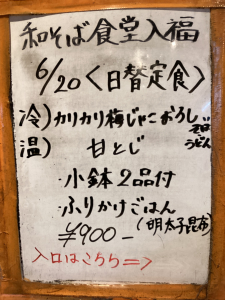 和そば食堂入福
6/20<日替定食>
冷)カリカリ梅じゃこおろし
うどん
温) 甘とじ
・小鉢2品付
・ふりかけごはん
(明太子昆布)
¥900-
入口はこちら⇒